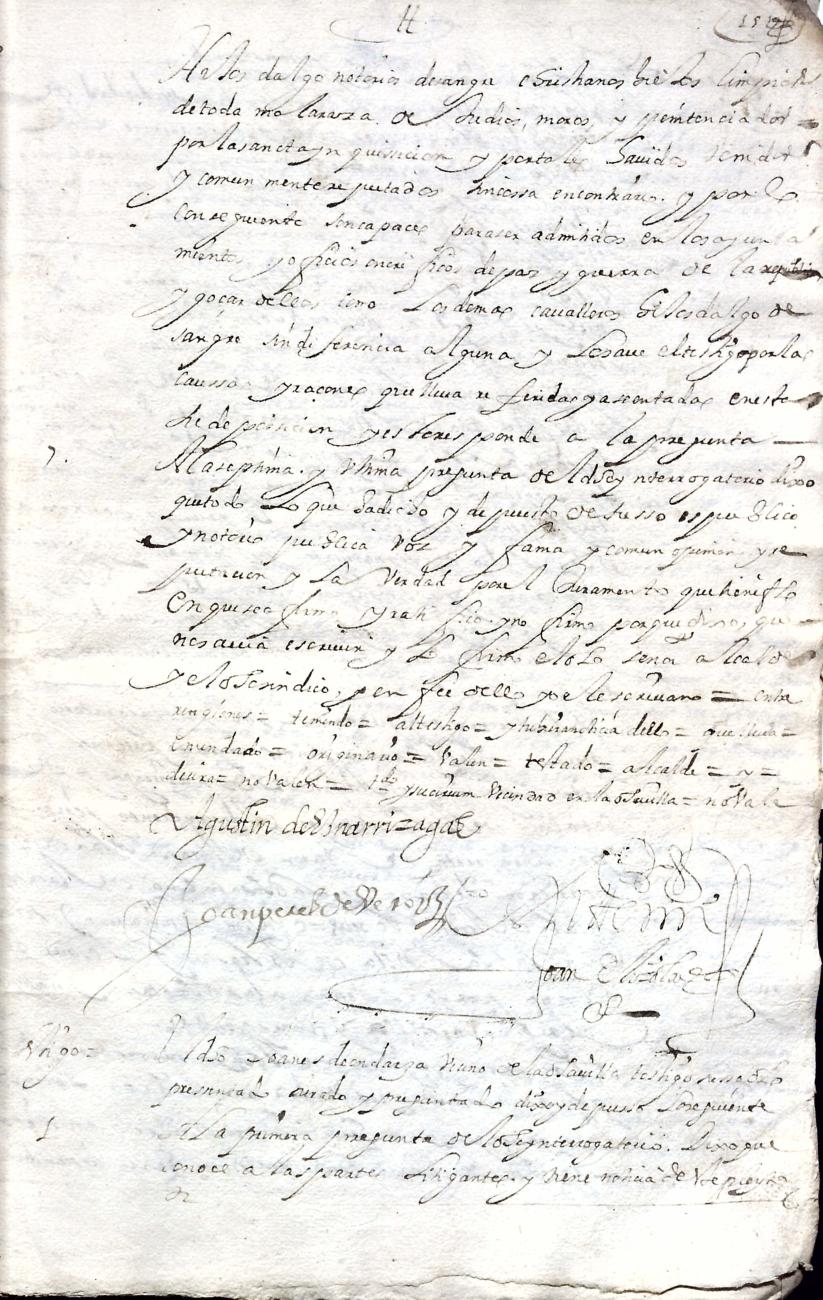 H
hijos dalgo notorios de sangre christianos biejos limpios
de toda mala raza de Judios, moros, y penitenciados
por la sancta ynquisicion y por tales havidos tenidos
y comunmente reputados sin cossa en contrario. y por lo
conseguiente son capaces para ser admitidos en los ayunta
mientos y oficios onorificos de paz y guerra de la republica
y goçar dellos como los demas cavalleros hijosdalgo de
sangre sin diferencia alguna y lo save el testigo por las
caussas y raçones que lleva referidas y asentadas en esta
su deposicion y esto responde a la pregunta
7. A la septima y ultima pregunta del dho ynterrogatorio dixo
que todo lo que ha dicho y depuesto de susso es publico
y notorio publica voz y fama y comun opinion y re
putacion y la verdad por el Juramento que tiene fho
en que se afirmo y ratifico y no firmo porque dixo que
no savia escrivir y lo firmo el dho señor alcalde
y el dho sindico, y en fee dello yo el escrivano = entre
renglones = teniendo = al testigo = dello = que lleva =
emendado = originario = Valen = testado = alcalde =
no Valen = vecindad en la dha villa = no Vale
Agustin de Ynarrizaga
Joan perez de
Ante mi
Joan Elizalde
Testigo = El dho Joanes de ondarza vecino de la dha villa testigo susso dho
presentado jurado y preguntado dixo y depusso lo seguiente
1 A la primera pregunta del dho ynterrogatorio. Dixo que
conoce a las partes litigantes y tiene noticia de este pleyto